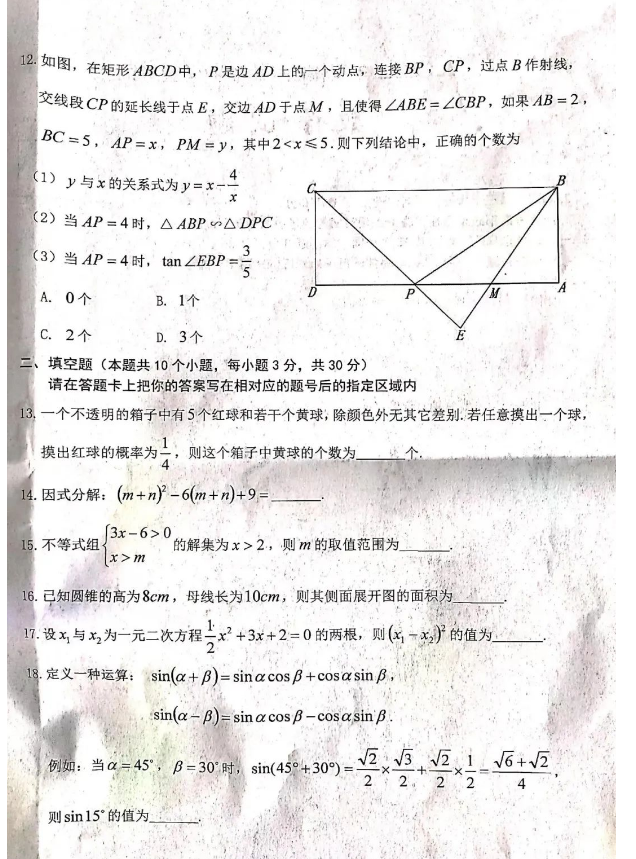 12. 如图，在矩形ABCD中，P是边AD上的一个动点，连接BP，CP，过点B作射线，
交线段CP的延长线于点E，交边AD于点M，且使得∠ABE=∠CBP，如果AB=2，
BC=5，AP=x，PM=y，其中2<x≤5.则下列结论中，正确的个数为
（1）y与x的关系式为y=x-4/x
（2）当AP=4时，△ABP∽△DPC
（3）当AP=4时，tan∠EBP=3/5
A. 0个 B. 1个
C. 2个 D. 3个
C B
D P M A
E
二、填空题（本题共10个小题，每小题3分，共30分）
请在答题卡上把你的答案写在相对应的题号后的指定区域内
13. 一个不透明的箱子中有5个红球和若干个黄球，除颜色外无其它差别.若任意摸出一个球，
摸出红球的概率为1/4，则这个箱子中黄球的个数为______个.
14. 因式分解：(m+n)²-6(m+n)+9=______.
15. 不等式组{3x-6>0
x>m 的解集为x>2，则m的取值范围为______.
16. 已知圆锥的高为8cm，母线长为10cm，则其侧面展开图的面积为______.
17. 设x₁与x₂为一元二次方程1/2x²+3x+2=0的两根，则(x₁-x₂)²的值为______.
18. 定义一种运算：sin(α+β)=sinαcosβ+cosαsinβ，
sin(α-β)=sinαcosβ-cosαsinβ.
例如：当α=45°，β=30°时，sin(45°+30°)=√2/2×√3/2+√2/2×1/2=(√6+√2)/4，
则sin15°的值为______.